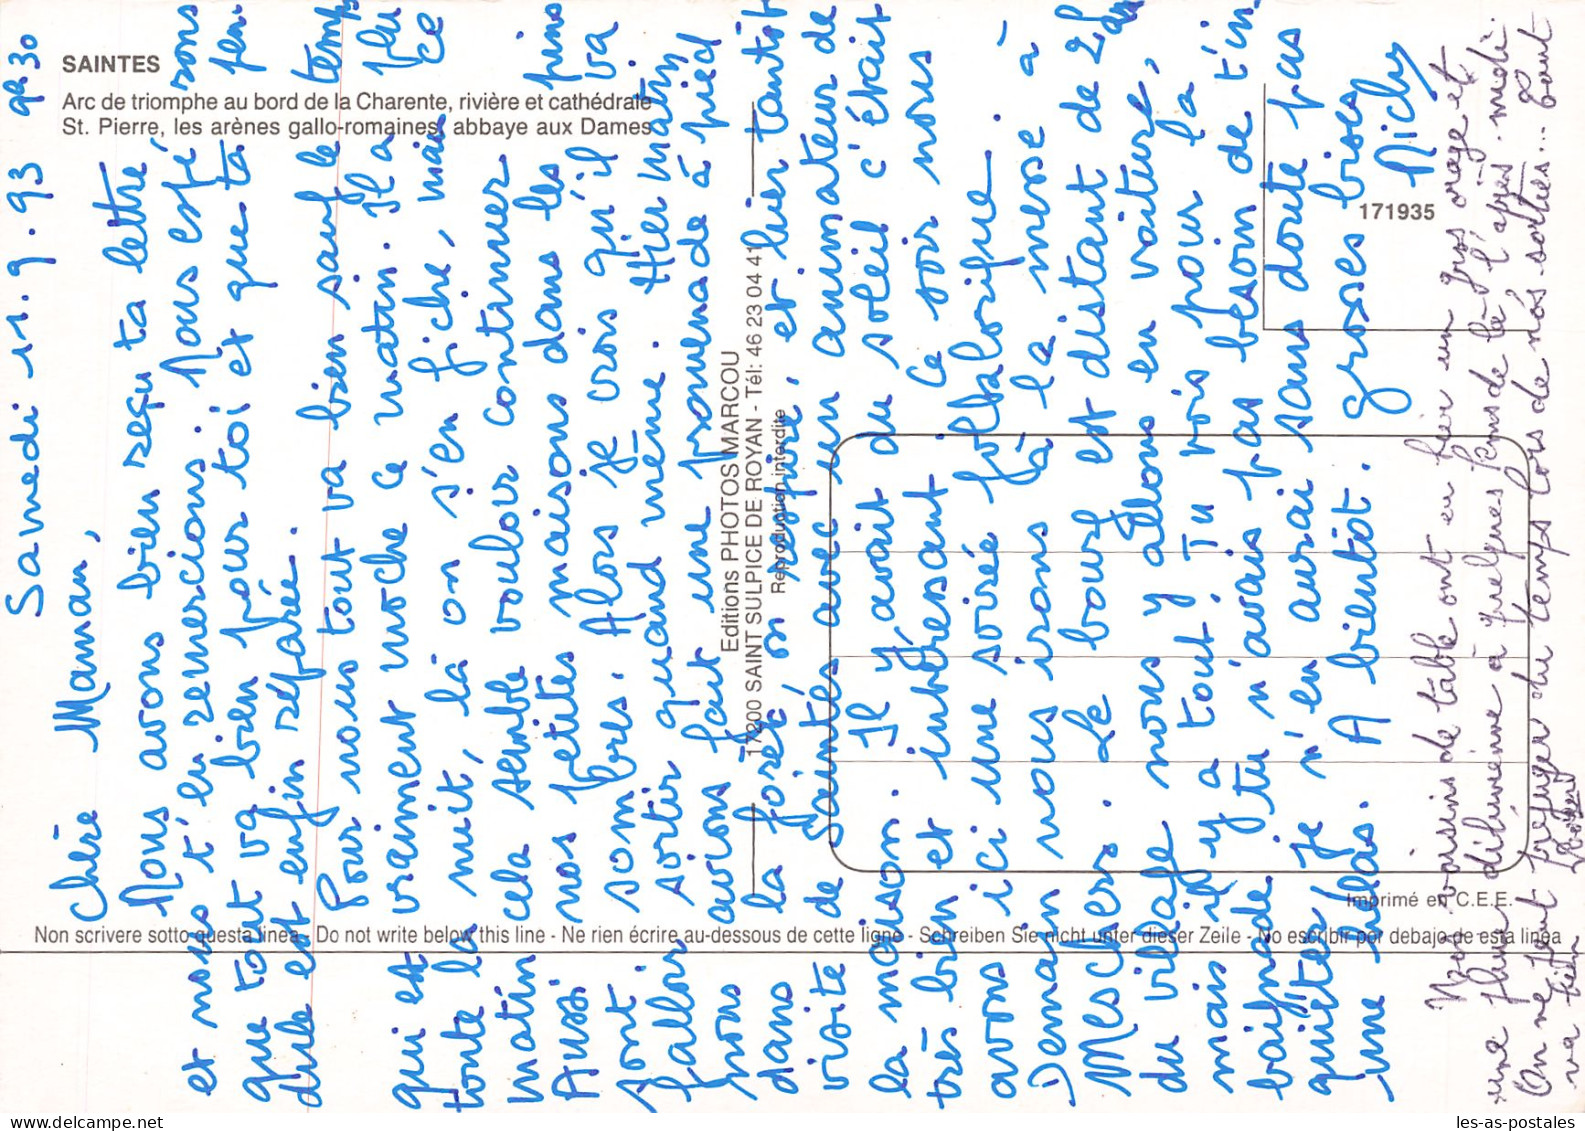 SAINTES
Arc de triomphe au bord de la Charente, rivière et cathédrale
St. Pierre, les arènes gallo-romaines, abbaye aux Dames
Editions PHOTOS MARCOU
17200 SAINT SULPICE DE ROYAN - Tél: 46 23 04 41
Reproduction interdite
171935
Imprimé en C.E.E.
Non scrivere sotto questa linea - Do not write below this line - Ne rien écrire au-dessous de cette ligne - Schreiben Sie nicht unter dieser Zeile - No escribir por debajo de esta linea
Samedi 11.9.93 9h30
Chère Maman,
Nous avons bien reçu ta lettre
et nous t'en remercions. Nous espérons
que tout va bien pour toi et que ta pen
dule est enfin réparée.
Pour nous tout va bien sauf le temps
qui est vraiment moche ce matin. Il a plu
toute la nuit, là on s'en fiche, mais ce
matin cela semble vouloir continuer
Aussi nos petites maisons dans les pins
sont sombres. Alors je crois qu'il va
falloir sortir quand même. Hier matin
nous avions fait une promenade à pied
dans la forêt, on respire, et hier tantôt
visite de Saintes avec un animateur de
la maison. Il y avait du soleil c'était
très bien et intéressant. Ce soir nous
avons ici une soirée folklorique.
Demain nous irons à la messe à
Meschers. Le bourg est distant de 2 km
du village nous y allons en voiture,
mais il y a tout. Tu vois pour la
baignade, tu n'avais pas besoin de t'in-
quiéter je n'en aurai sans doute pas
une hélas. A bientôt. grosses bises
Michy
Nos voisins de table ont eu hier un gros orage et
une pluie diluvienne à quelques kms de là l'après-midi.
On ne peut préjuger du temps lors de nos sorties... tout
va bien
les-as-postales